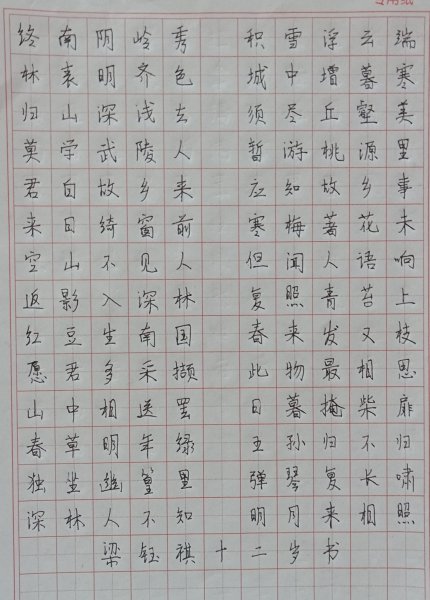 用纸
终南阴岭秀 积雪浮云端
林表明齐色 城中增暮寒
归山深浅去 须尽丘壑美
莫学武陵人 暂游桃源里
君自故乡来 应知故乡事
来日绮窗前 寒梅著花未
空山不见人 但闻人语响
返影入深林 复照青苔上
红豆生南国 春来发又枝
愿君多采撷 此物最相思
山中相送罢 日暮掩柴扉
春草明年绿 王孙归不归
独坐幽篁里 弹琴复长啸
深林人不知 明月来相照
梁钰祺十二岁书